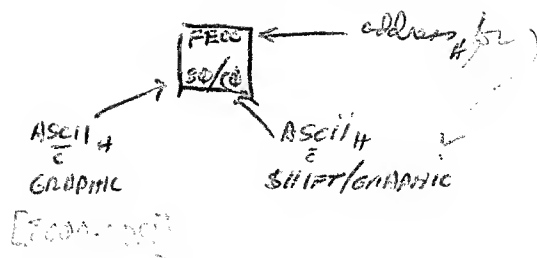 FE00
80/C0
address H for
ASCII H
c̄
GRAPHIC
ASCII H
c̄
SHIFT/GRAPHIC